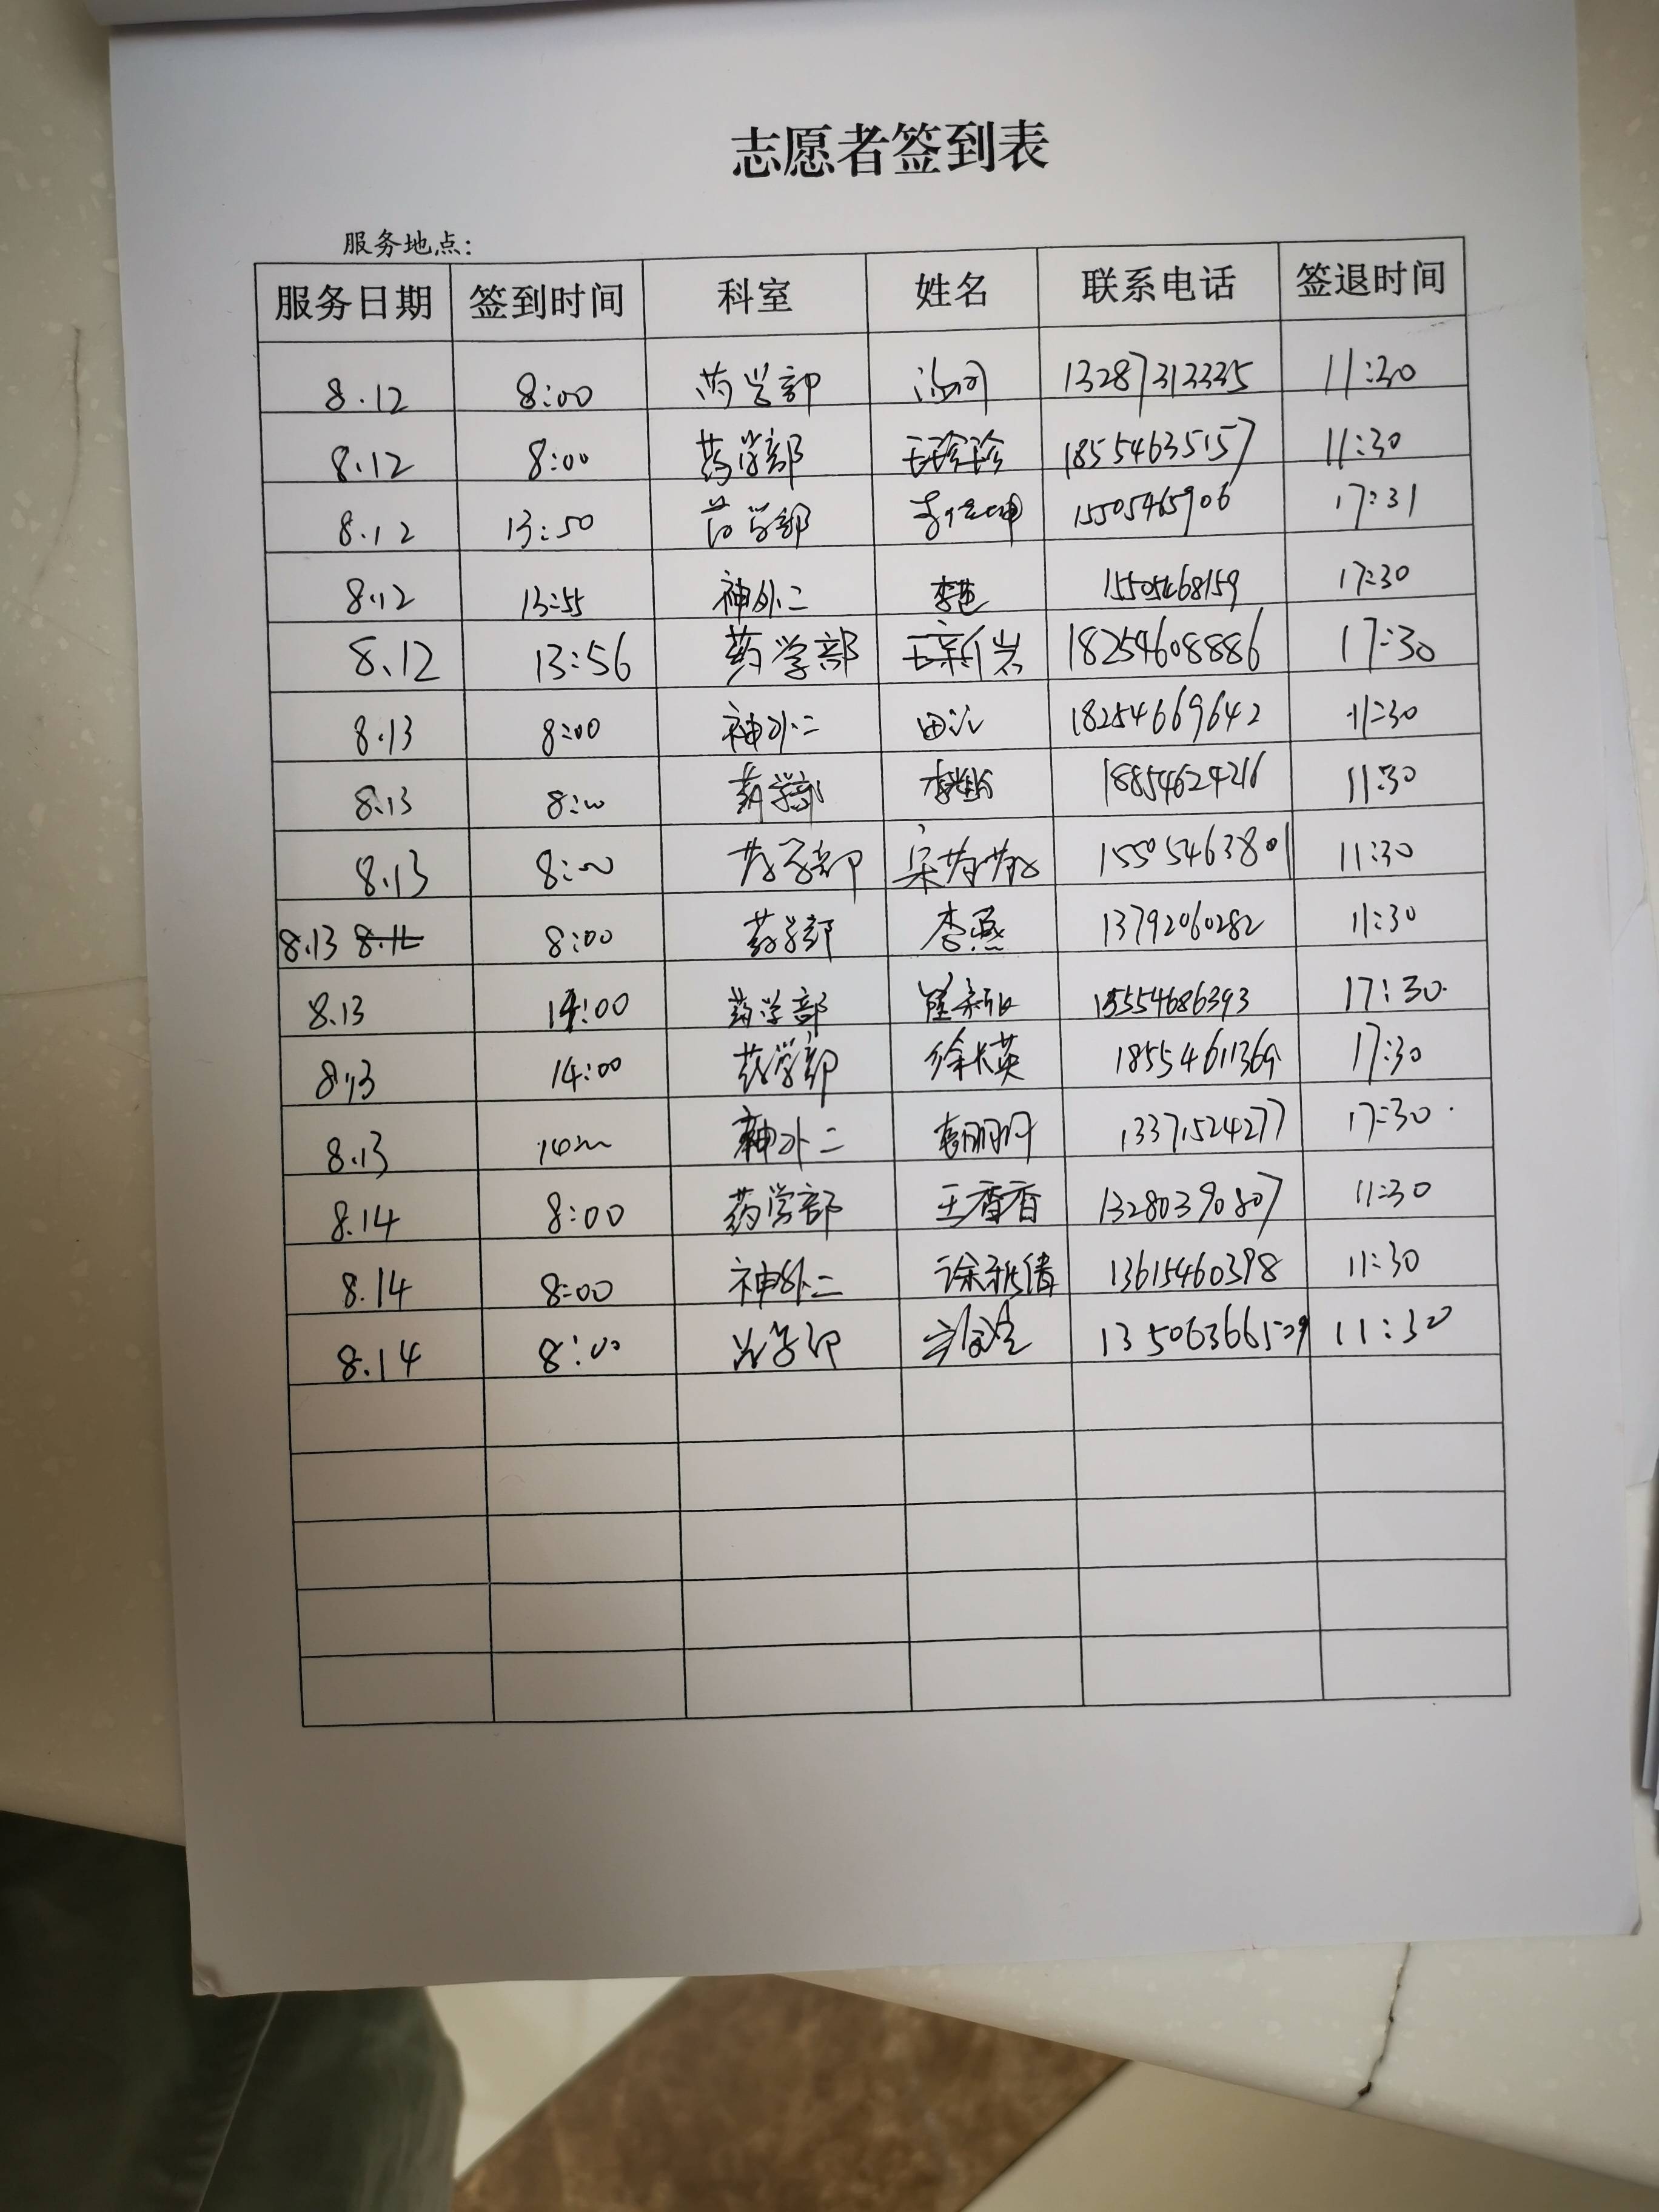 志愿者签到表
服务地点：
服务日期 签到时间 科室 姓名 联系电话 签退时间
8.12 8:00 药学部 13287313335 11:30
8.12 8:00 药学部 王珍珍 18554635157 11:30
8.12 13:50 药学部 15505465906 17:31
8.12 13:55 神外二 李芭 15505468159 17:30
8.12 13:56 药学部 王新岩 18254608886 17:30
8.13 8:00 神外二 田沁 18254669642 11:30
8.13 8:00 药学部 18854624216 11:30
8.13 8:00 药学部 宋芳芳 15505463801 11:30
8.13 8:00 药学部 李燕 13792060282 11:30
8.13 14:00 药学部 15554686393 17:30
8.13 14:00 药学部 徐长英 18554611369 17:30
8.13 神外二 13371524277 17:30
8.14 8:00 药学部 王香香 13280390807 11:30
8.14 8:00 神外二 徐新倩 13615460398 11:30
8.14 8:00 药学部 11:30